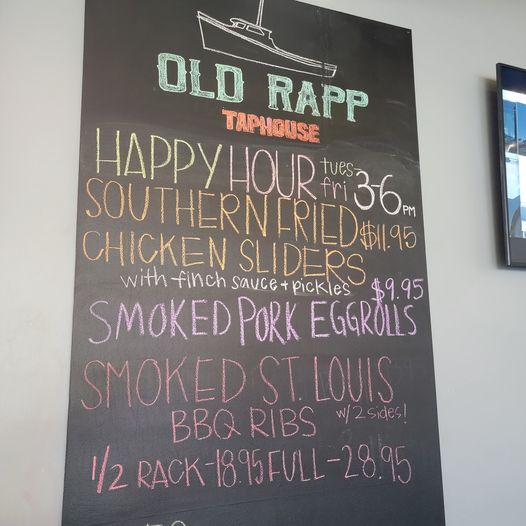 OLD RAPP
TAPHOUSE
HAPPY HOUR tues-fri 3-6 PM
SOUTHERN FRIED $11.95
CHICKEN SLIDERS
with finch sauce + pickles
$9.95
SMOKED PORK EGGROLLS
SMOKED ST. LOUIS
BBQ RIBS w/2 sides!
1/2 RACK-18.95 FULL-28.95